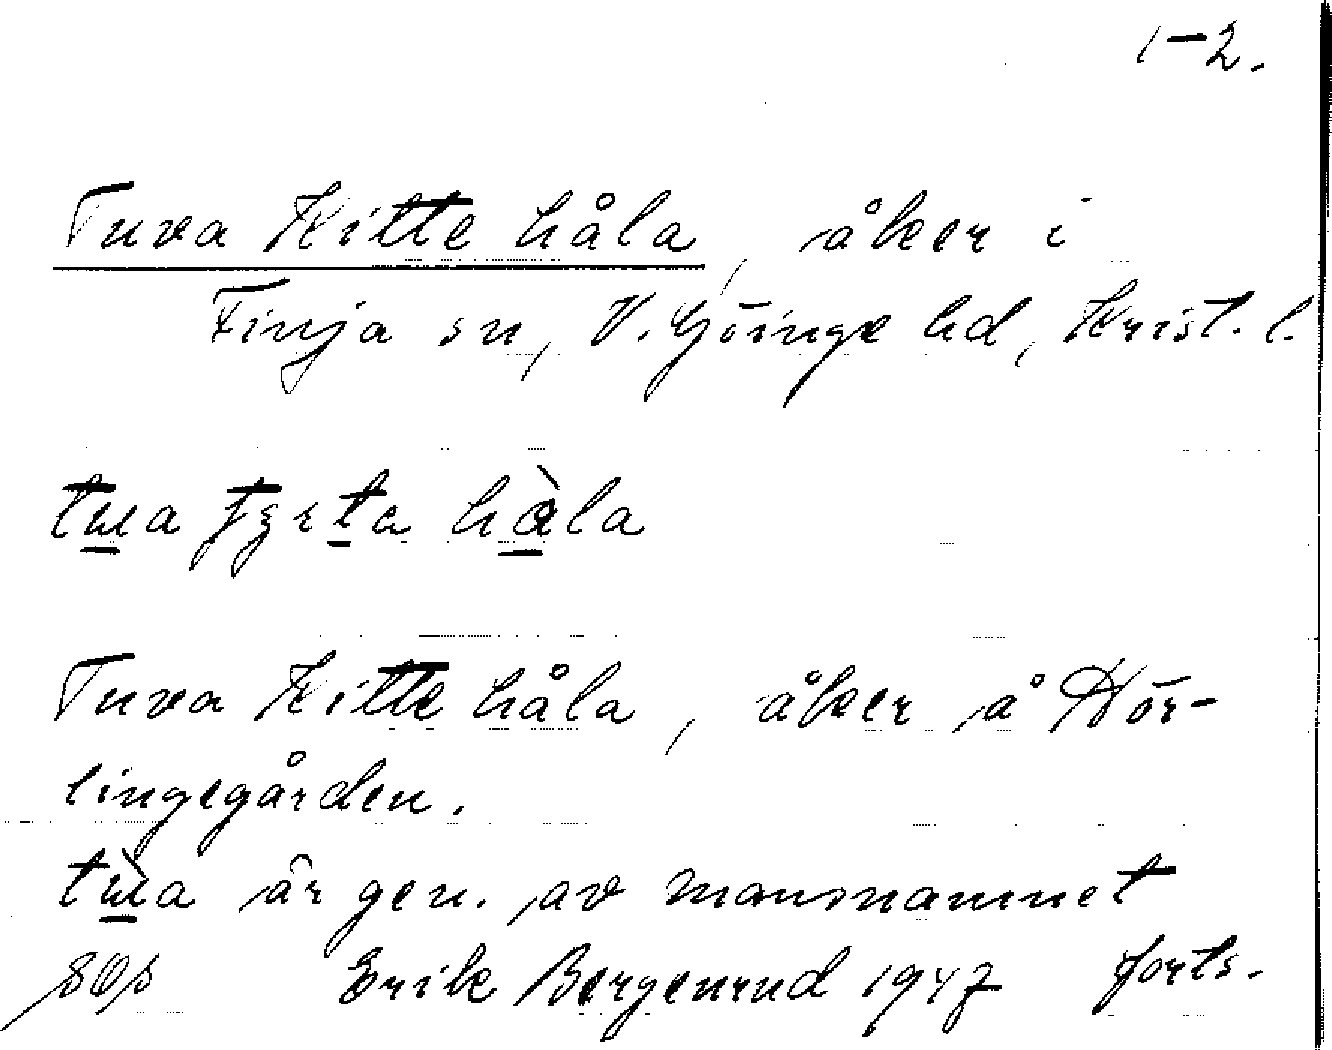 1-2.
Tuva Kitte håla, åker i
Finja sn, V. Göinge hd, Krist. l.
håla
Tuva Kitte håla, åker å Hör-
lingegården.
är gen. av mansnamnet
Erik Bergenrud 1947 forts.